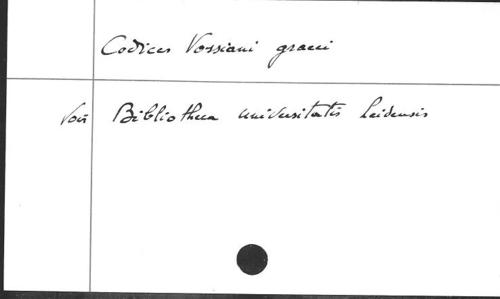 Codices Vossiani graeci
Voir Bibliotheca Universitatis Leidensis